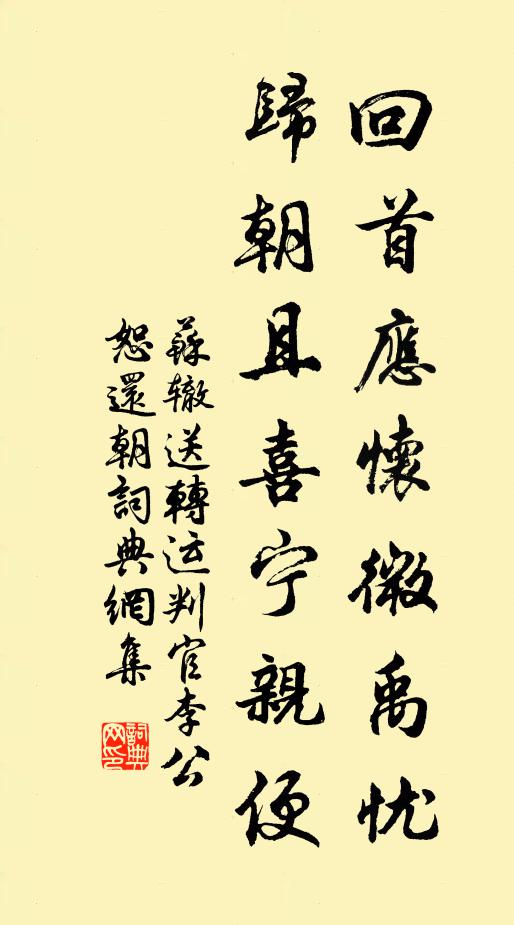 回首應懷微禹忧
歸朝且喜宁親便
蘇辙送轉运判官李公
恕還朝詞典網集
詞典网印